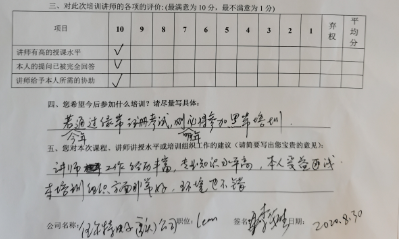 三、对此次培训讲师的各项的评价:(最满意为 10 分,最不满意为 1 分)
项目 10 9 8 7 6 5 4 3 2 1 弃权 平均分
讲师有高的授课水平 ✓
本人的提问已被完全回答 ✓
讲师给予本人所需的协助 ✓
四、您希望今后参加什么培训?请尽量写具体:
若通过 考试, 参加 培训
今年
五、您对本次课程、讲师讲授水平或培训组织工作的建议(简要写出您宝贵的意见):
讲师 工作经历丰富,专业知识水平高,本人受益匪浅
本培训组织方面非常好,环境也不错
公司名称: 公司 职位: 签名: 日期: 2020.8.30